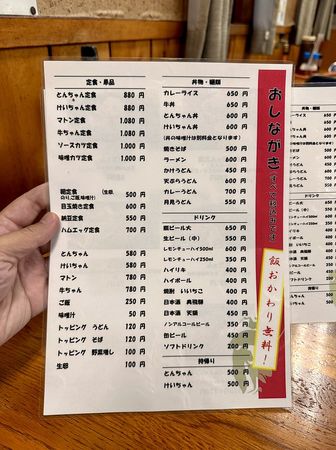 定食・単品
とんちゃん定食 880 円
けいちゃん定食 880 円
マトン定食 1,080 円
牛ちゃん定食 1,080 円
ソースカツ定食 1,000 円
味噌カツ定食 1,000 円
朝定食 (生卵、のり、ご飯、味噌汁) 500 円
目玉焼き定食 600 円
納豆定食 550 円
ハムエッグ定食 700 円
とんちゃん 580 円
けいちゃん 580 円
マトン 780 円
牛ちゃん 780 円
ご飯 250 円
味噌汁 50 円
トッピング うどん 120 円
トッピング そば 120 円
トッピング 野菜増し 100 円
生卵 100 円
丼物・麺類
カレーライス 650 円
牛丼 650 円
とんちゃん丼 600 円
けいちゃん丼 600 円
(丼の味噌汁は別料金となります)
焼きそば 500 円
ラーメン 600 円
かけうどん 450 円
天ぷらうどん 650 円
カレーうどん 700 円
月見うどん 550 円
ドリンク
瓶ビール大 650 円
生ビール(中) 550 円
レモンチューハイ500ml 600 円
レモンチューハイ250ml 350 円
ハイリキ 400 円
ハイボール 400 円
焼酎 いいちこ 400 円
日本酒 奥飛騨 450 円
日本酒 天領 450 円
ノンアルコールビール 450 円
缶ビール 450 円
ソフトドリンク 200 円
持帰り
とんちゃん 500 円
けいちゃん 500 円
おしながき すべて税込みです
飯おかわり無料!